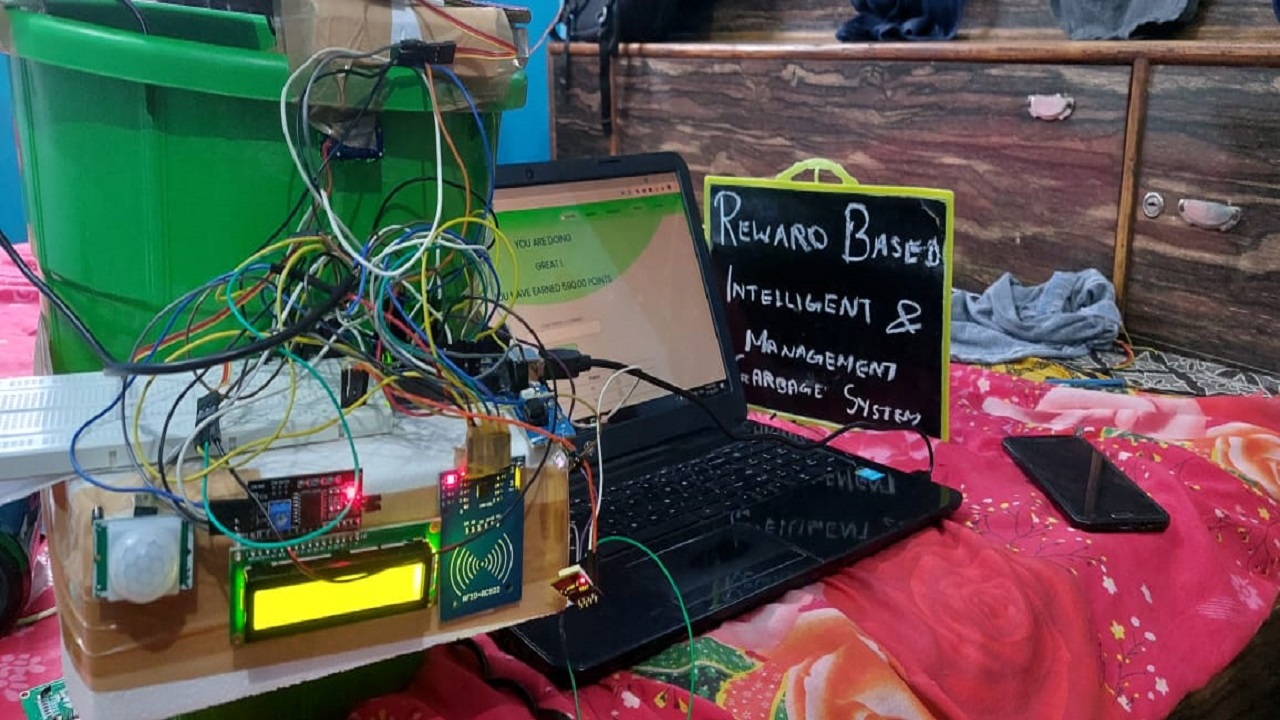 YOU ARE DOING
GREAT !
YOU HAVE EARNED 590.00 POINTS
REWARD BASED
INTELLIGENT &
MANAGEMENT
GARBAGE SYSTEM
RFID-RC522